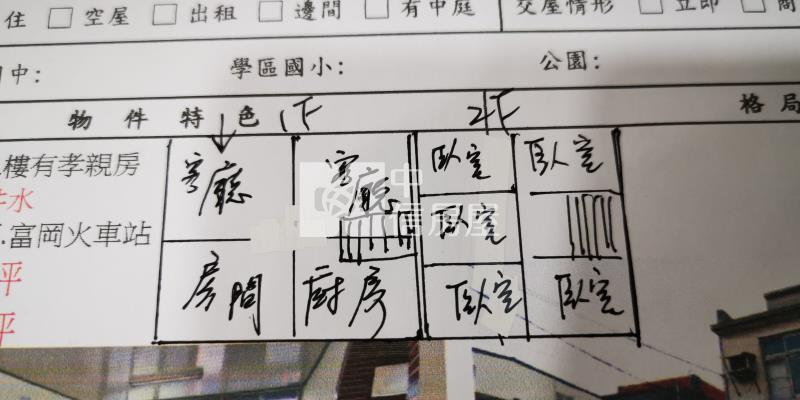 住 □ 空屋 □ 出租 □ 邊間 □ 有中庭 交屋情形 □ 立即 □ 商
中: 學區國小: 公園:
物件特色 1F 2F 格局
樓有孝親房
水
.富岡火車站
平
平
客廳 客廳 臥室 臥室
臥室
房間 廚房 臥室 臥室
中信房屋